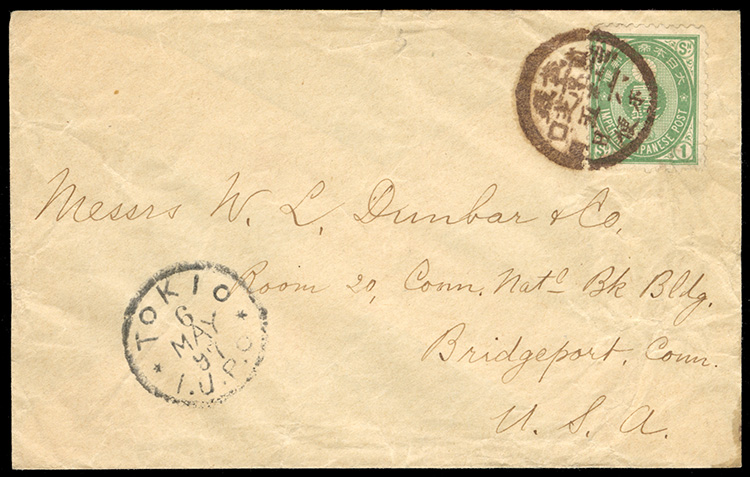 大日本
S
1
IMP
JAPANESE POST
Messrs W. L. Dunbar & Co,
Room 20, Conn. Natl Bk Bldg.
Bridgeport, Conn.
U. S. A.
TOKIO
6
MAY
97
I.J.P.O